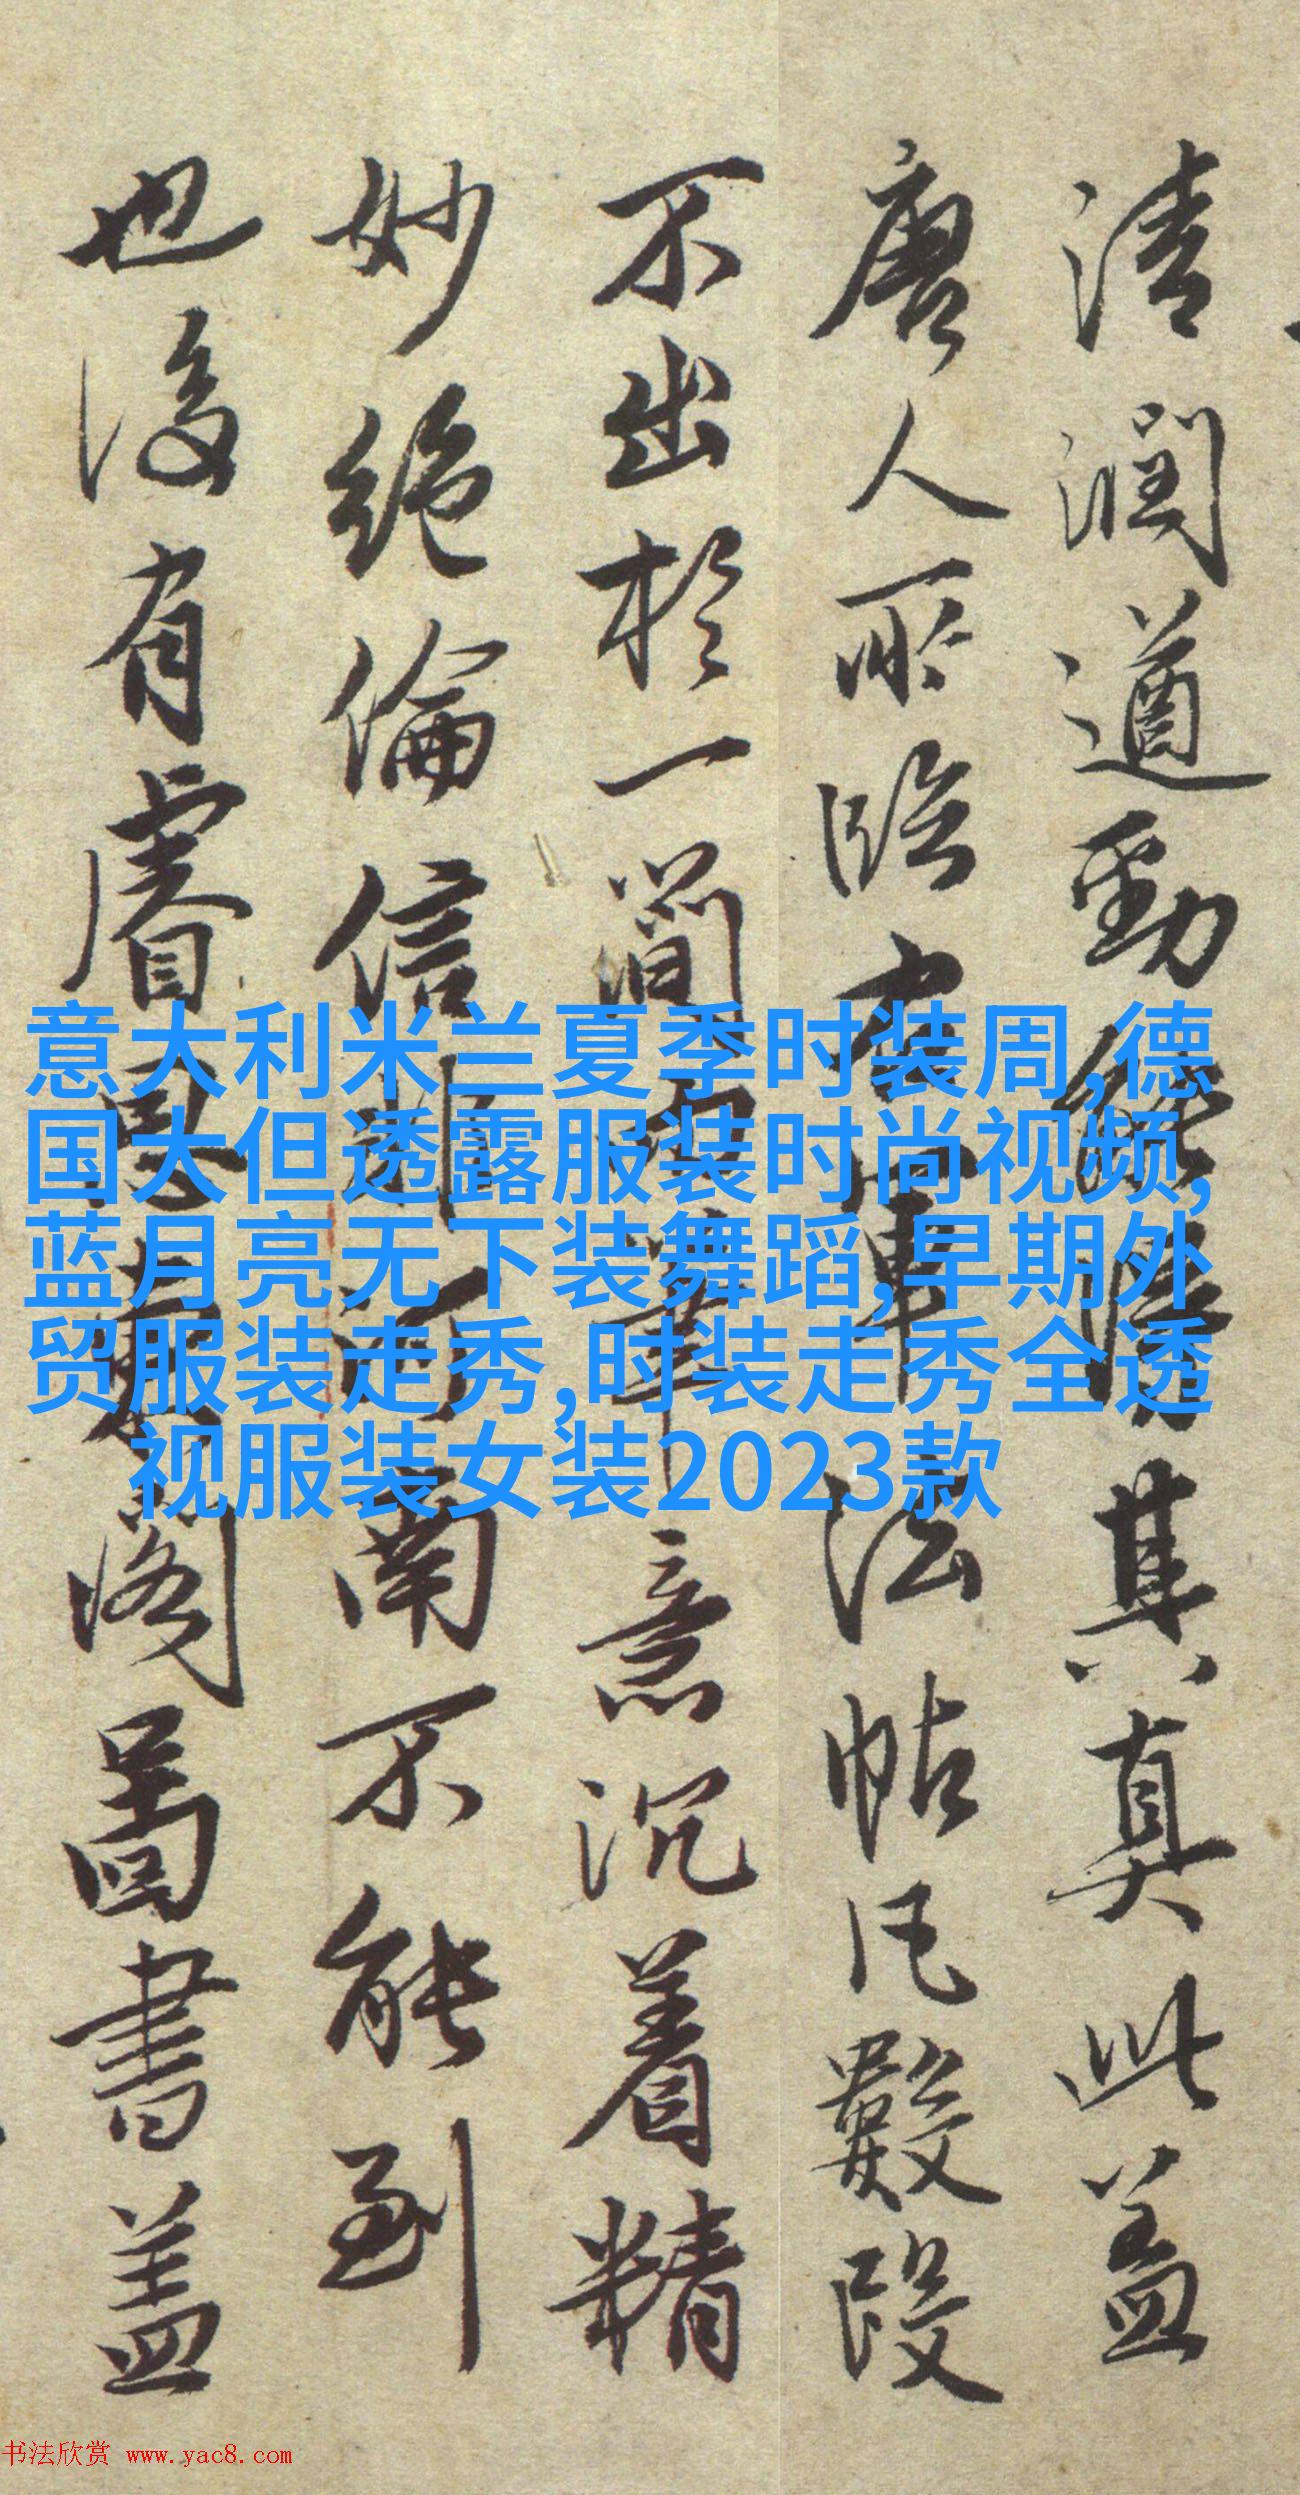 清潤遒勁能其真此盖
唐人所臨右軍法帖凡數段
不出於一簡而筆意沉着精
妙絕倫信非河南不能到
也後有睿思東閣圖書盖
意大利米兰夏季时装周,德
国大但透露服装时尚视频,
蓝月亮无下装舞蹈,早期外
贸服装走秀,时装走秀全透
视服装女装2023款
书法欣赏 www.yac8.com